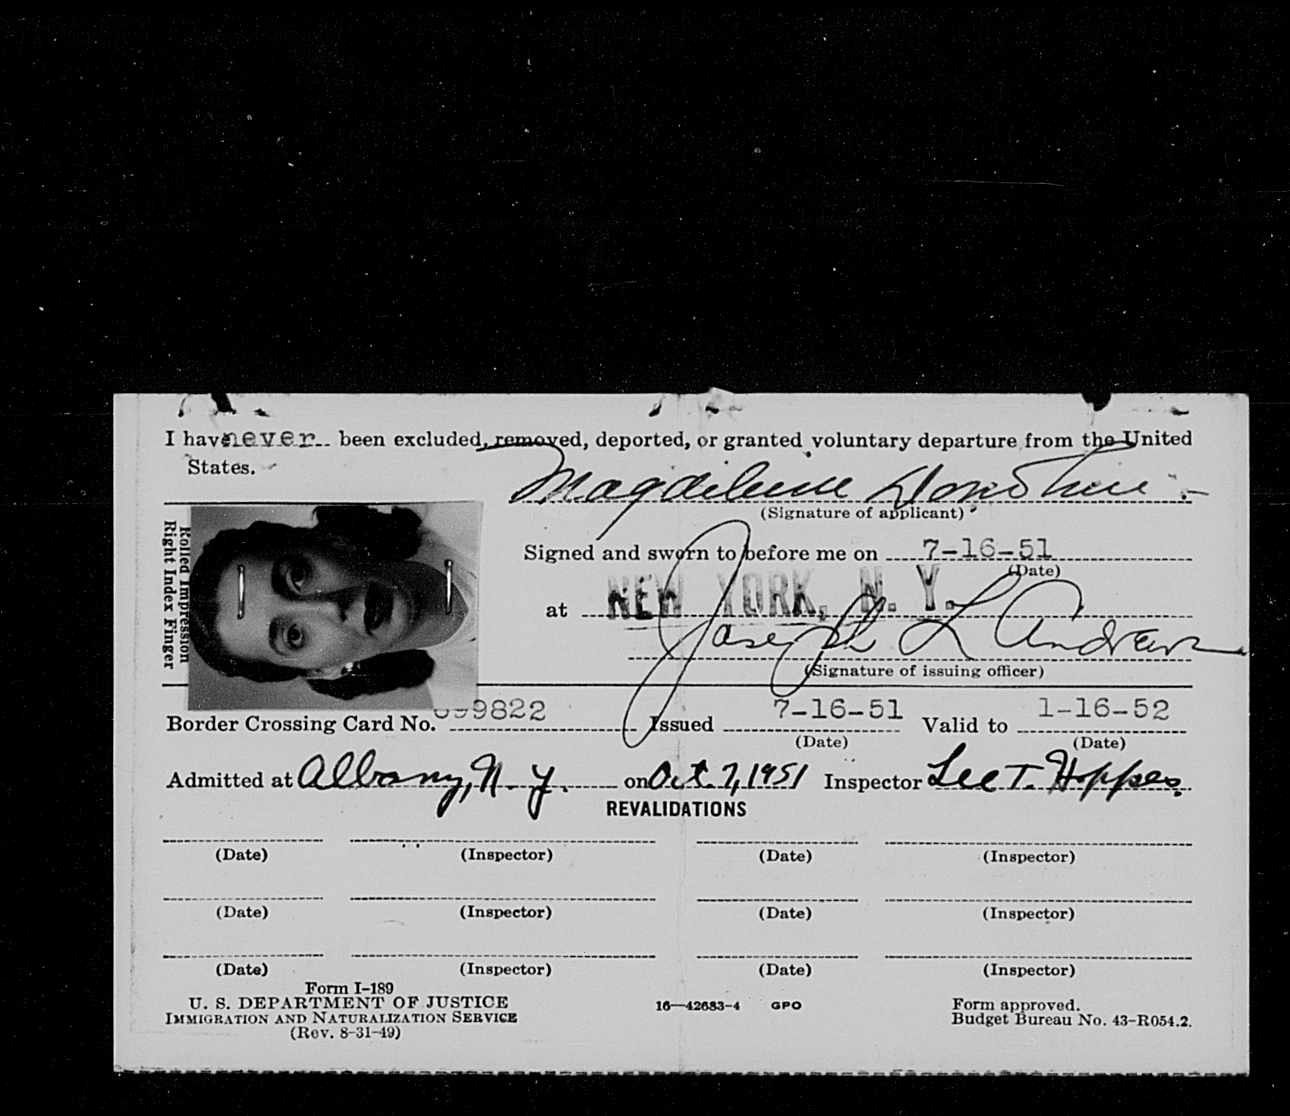 I have never been excluded, removed, deported, or granted voluntary departure from the United
States.
Magdilene
(Signature of applicant)
Rolled Impression
Right Index Finger
Signed and sworn to before me on 7-16-51
(Date)
at NEW YORK, N. Y.
Joseph L Andrews
(Signature of issuing officer)
Border Crossing Card No. 699822 Issued 7-16-51 Valid to 1-16-52
(Date) (Date)
Admitted at Albany, N. Y. on Oct. 7, 1951 Inspector Lee T. Hoppes.
REVALIDATIONS
(Date) (Inspector) (Date) (Inspector)
(Date) (Inspector) (Date) (Inspector)
(Date) (Inspector) (Date) (Inspector)
Form I-189
U. S. DEPARTMENT OF JUSTICE
IMMIGRATION AND NATURALIZATION SERVICE
(Rev. 8-31-49)
16—42683-4 GPO
Form approved.
Budget Bureau No. 43-R054.2.